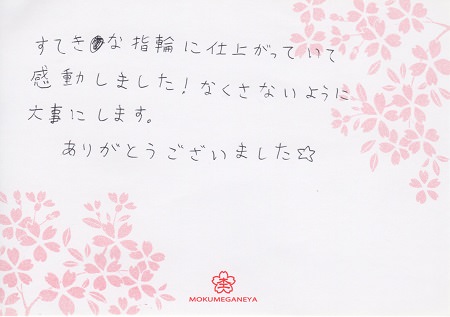 すてきな指輪に仕上がっていて
感動しました!なくさないように
大事にします。
ありがとうございました☆
MOKUMEGANEYA